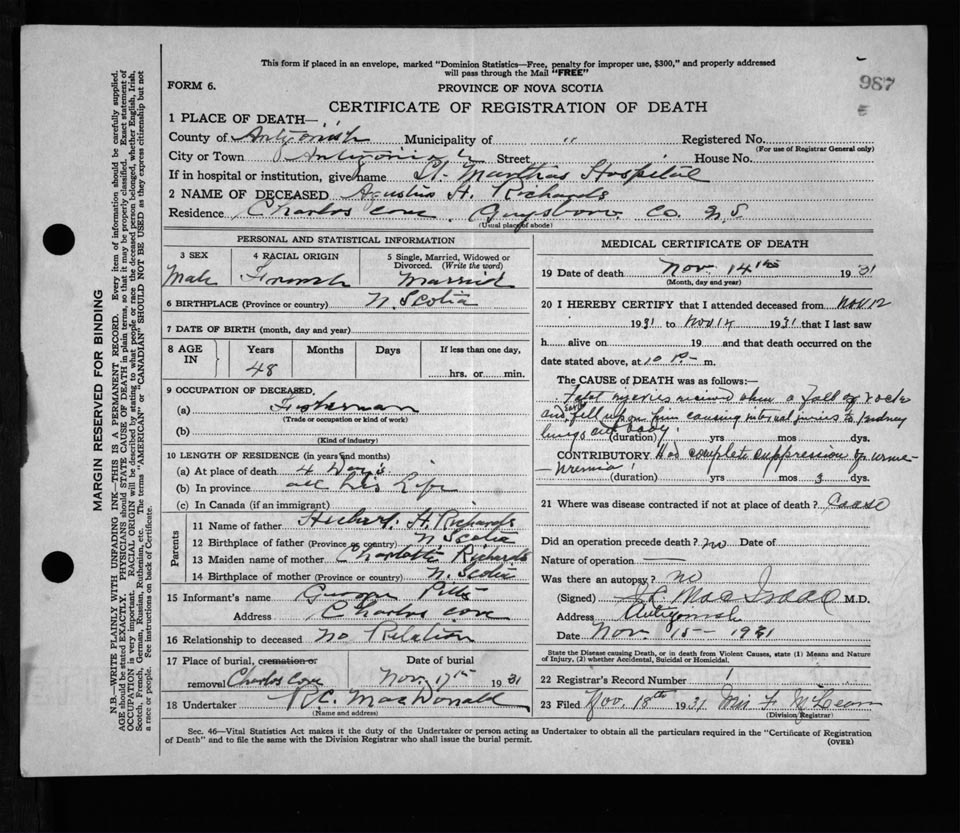 This form if placed in an envelope, marked "Dominion Statistics—Free, penalty for improper use, $300," and properly addressed
will pass through the Mail "FREE"
987
E
FORM 6.
PROVINCE OF NOVA SCOTIA
CERTIFICATE OF REGISTRATION OF DEATH
1 PLACE OF DEATH—
County of Antigonish Municipality of " Registered No.
(For use of Registrar General only)
City or Town Antigonish Street House No.
If in hospital or institution, give name St. Marthas Hospital
2 NAME OF DECEASED Agustus H. Richards
Residence Charlos Cove, Guysboro Co. N.S.
(Usual place of abode)
PERSONAL AND STATISTICAL INFORMATION
3 SEX 4 RACIAL ORIGIN 5 Single, Married, Widowed or
Divorced. (Write the word)
Male French Married
6 BIRTHPLACE (Province or country) N. Scotia
7 DATE OF BIRTH (month, day and year)
8 AGE IN Years Months Days If less than one day,
48 hrs. or min.
9 OCCUPATION OF DECEASED,
(a) Fisherman
(Trade or occupation or kind of work)
(b)
(Kind of industry)
10 LENGTH OF RESIDENCE (in years and months)
(a) At place of death 4 Days
(b) In province all his Life
(c) In Canada (if an immigrant)
Parents
11 Name of father H. Richards
12 Birthplace of father (Province or country) N Scotia
13 Maiden name of mother Charlotte Richards
14 Birthplace of mother (Province or country) N. Scotia
15 Informant's name George Pitts
Address Charlos Cove
16 Relationship to deceased no Relation
17 Place of burial, cremation or Date of burial
removal Charlos Cove Nov. 17th 1931
18 Undertaker R.C. MacDonald
(Name and address)
MEDICAL CERTIFICATE OF DEATH
19 Date of death Nov. 14th 1931
(Month, day and year)
20 I HEREBY CERTIFY that I attended deceased from Nov 12
1931 to Nov 14 1931 that I last saw
h alive on 19 and that death occurred on the
date stated above, at 10 P. m.
The CAUSE of DEATH was as follows:—
Fatal injuries received when a fall of rock
and sand fell upon him causing internal injuries to kidney
lungs and body.
(duration) yrs mos dys.
CONTRIBUTORY Had complete suppression of urine—
Uremia!
(duration) yrs mos 3 dys.
21 Where was disease contracted if not at place of death? Canso
Did an operation precede death? no Date of
Nature of operation
Was there an autopsy? no
(Signed) MacIsaac M.D.
Address Antigonish
Date Nov 15— 1931
State the Disease causing Death, or in death from Violent Causes, state (1) Means and Nature
of Injury, (2) whether Accidental, Suicidal or Homicidal.
22 Registrar's Record Number 1
23 Filed Nov. 18th 1931 Min F. McLean
(Division Registrar)
Sec. 46—Vital Statistics Act makes it the duty of the Undertaker or person acting as Undertaker to obtain all the particulars required in the "Certificate of Registration
of Death" and to file the same with the Division Registrar who shall issue the burial permit. (OVER)
MARGIN RESERVED FOR BINDING
N.B.—WRITE PLAINLY WITH UNFADING INK—THIS IS A PERMANENT RECORD. Every item of information should be carefully supplied.
AGE should be stated EXACTLY. PHYSICIANS should STATE CAUSE OF DEATH in plain terms, so that it may be properly classified. Exact statement of
OCCUPATION is very important. RACIAL ORIGIN will be described by stating to what people or race the deceased person belonged, whether English, Irish,
Scotch, French, German, Russian, Ruthenian, etc. The terms "AMERICAN" or "CANADIAN" SHOULD NOT BE USED as they express citizenship but not
a race or people. Fee instructions on back of Certificate.